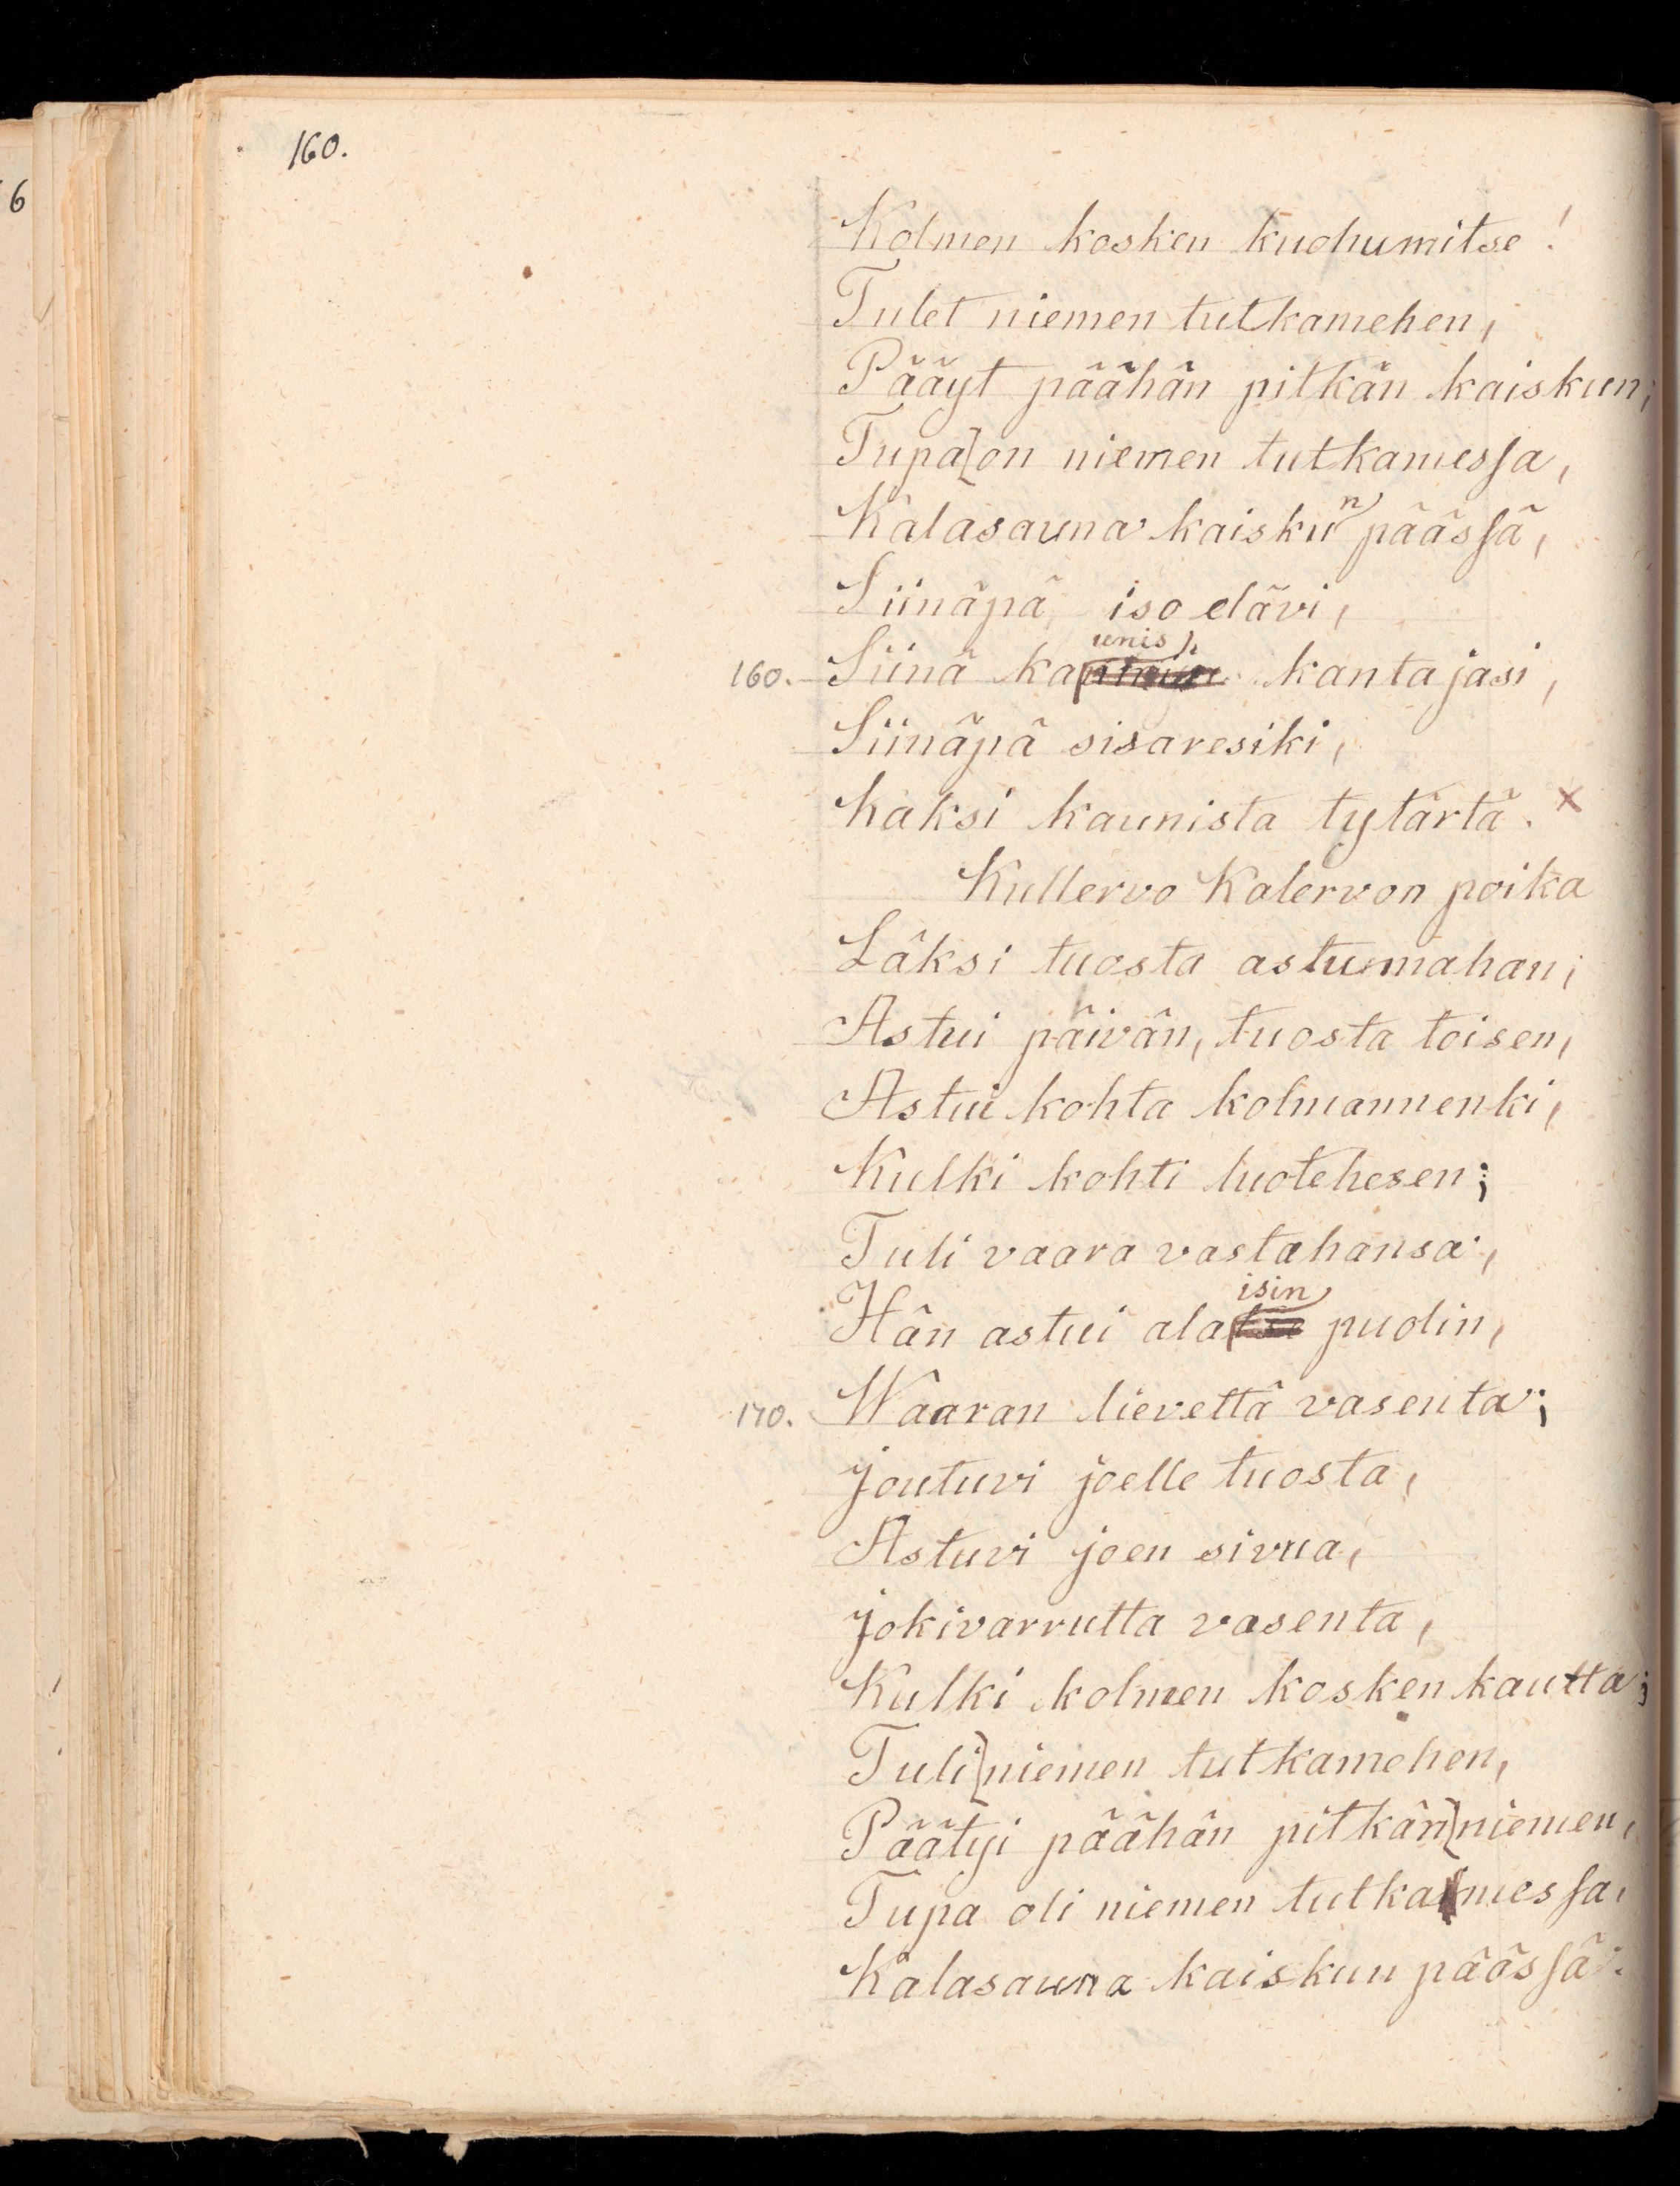 160.
6
Kolmen kosken kuohumitse!
Tulet niemen tutkamehen,
Pääyt päähän pitkän kaiskun;
Tupa on niemen tutkamessa,
Kalasauna kaiskun päässä,
Siinäpä iso elävi,
unis
160. Siinä ka kantajasi,
Siinäpä sisaresiki,
kaksi kaunista tytärtä. x
Kullervo Kalervon poika
Läksi tuosta astumahan;
Astui päivän, tuosta toisen,
Astui kohta kolmannenki,
Kulki kohti luotehesen;
Tuli vaara vastahansa,
isin
Hän astui alatse puolin,
170. Waaran lievettä vasenta;
Joutuvi joelle tuosta,
Astuvi joen sivua,
Jokivarrutta vasenta,
Kulki kolmen kosken kautta;
Tuli niemen tutkamehen,
Päätyi päähän pitkän niemen,
Tupa oli niemen tutkamessa,
Kalasauna kaiskun päässä.